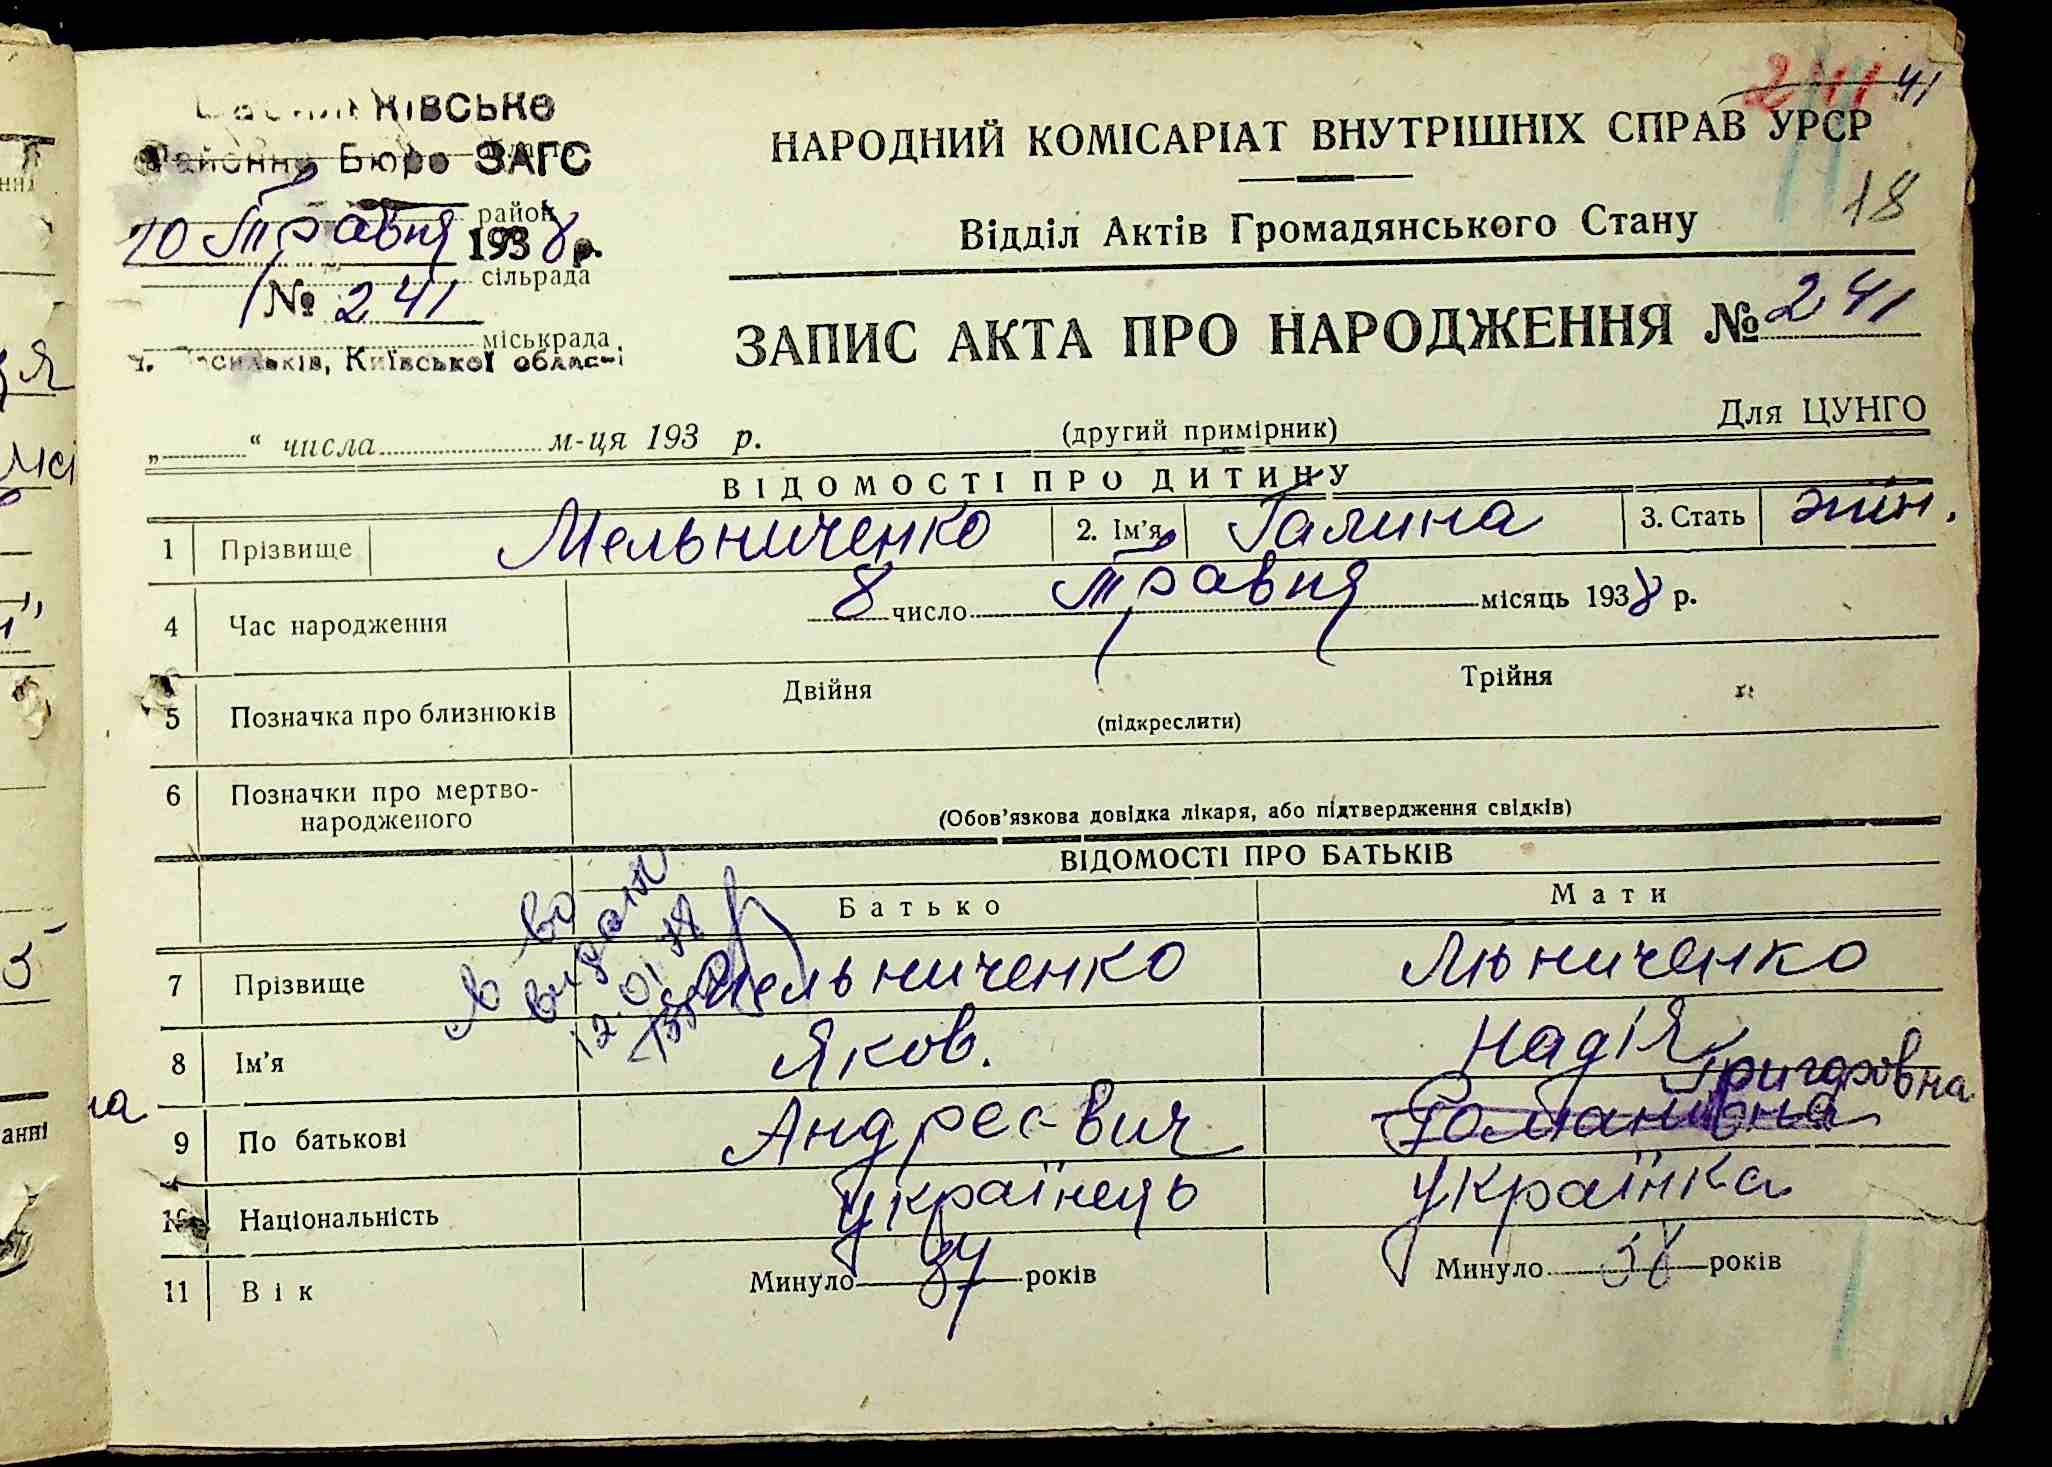 НАРОДНИЙ КОМІСАРІАТ ВНУТРІШНІХ СПРАВ УРСР
41
18
Районне Бюро ЗАГС
район
10 Травня 1938 р.
сільрада
№ 241
міськрада
Васильків, Київської області
Відділ Актів Громадянського Стану
ЗАПИС АКТА ПРО НАРОДЖЕННЯ № 241
„ “ числа м-ця 193 р. (другий примірник) Для ЦУНГО
ВІДОМОСТІ ПРО ДИТИНУ
1 Прізвище Мельниченко 2. Ім’я Галина 3. Стать жін.
4 Час народження 8 число Травня місяць 1938 р.
5 Позначка про близнюків Двійня Трійня
(підкреслити)
6 Позначки про мертво-
народженого
(Обов’язкова довідка лікаря, або підтвердження свідків)
ВІДОМОСТІ ПРО БАТЬКІВ
Батько Мати
7 Прізвище Мельниченко
8 Ім’я Яков. Надія
Григоровна
9 По батькові Андреєвич Романивна
10 Національність українець українка
11 Вік Минуло 37 років Минуло 38 років